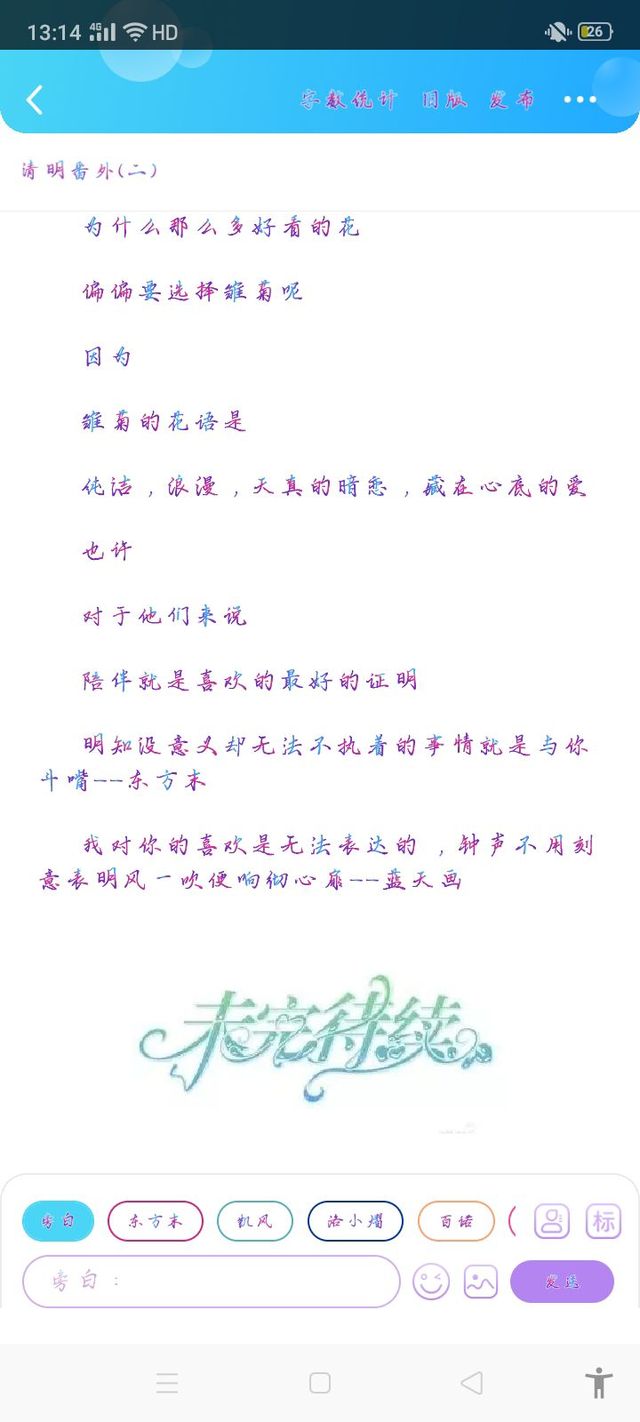 13:14 4G HD 26
字数统计 旧版 发布
清明番外(二)
为什么那么多好看的花
偏偏要选择雏菊呢
因为
雏菊的花语是
纯洁，浪漫，天真的暗恋，藏在心底的爱
也许
对于他们来说
陪伴就是喜欢的最好的证明
明知没意义却无法不执着的事情就是与你
斗嘴——东方末
我对你的喜欢是无法表达的 ，钟声不用刻
意表明风一吹便响彻心扉——蓝天画
未完待续
旁白 东方末 凯风 洛小熠 百诺 标
旁白： 发送